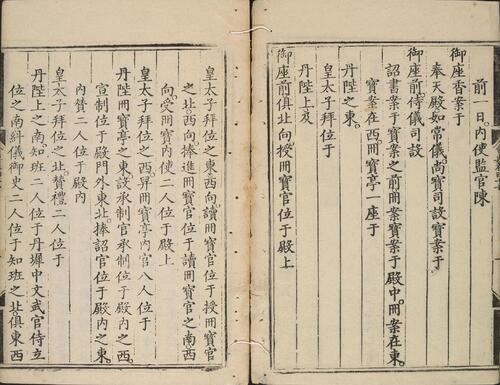 前一日。内使監官陳
御座香案于
奉天殿如常儀。尚寶司設寶案于
御座前。侍儀司設
詔書案于寶案之前。冊案寶案于殿中。冊案在東。
寶案在西。冊寶亭一座于
丹陛之東。設
皇太子拜位于
丹陛上及
御座前俱北向。授冊寶官位于殿上
皇太子拜位之東西向。讀冊寶官位于授冊寶官
之北西向。捧進冊寶官位于讀冊寶官之南西
向。受冊寶内使二人位于殿上
皇太子拜位之西。舁冊寶亭内官八人位于
丹陛冊寶亭之東。設承制官承制位于殿内之西。
宣制位于殿門外東北。捧詔官位于殿内之東。
内贊二人位于殿内
皇太子拜位之北。贊禮二人位于
丹陛上之南。知班二人位于丹墀中文武官侍立
位之南。糾儀御史二人位于知班之北。俱東西